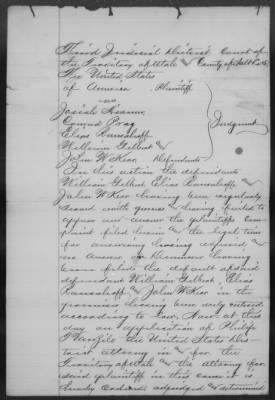 Third Judicial District Court of
the Territory of Utah County of Salt Lake
The United States
of America Plaintiff
vs
Josiah
Conrad Prag
Elias Ransohoff
William Gilbert
John W Kerr Defendants
Judgment
In this action the defendants
William Gilbert, Elias Ransohoff
John W Kerr having been regularly
served with process having failed to
appear and answer the plaintiffs com-
plaint filed herein and the legal time
for answering having expired and
no answer or Demurrer having
been filed the default of said
defendant William Gilbert, Elias
Ransohoff and John W Kerr in the
premises having been duly entered
according to law, Now at this
day on application of Philip
the United States Dis-
trict attorney in and for the
Territory of Utah and the attorney for
said plaintiff in this cause it is
hereby ordered, adjudged and determined